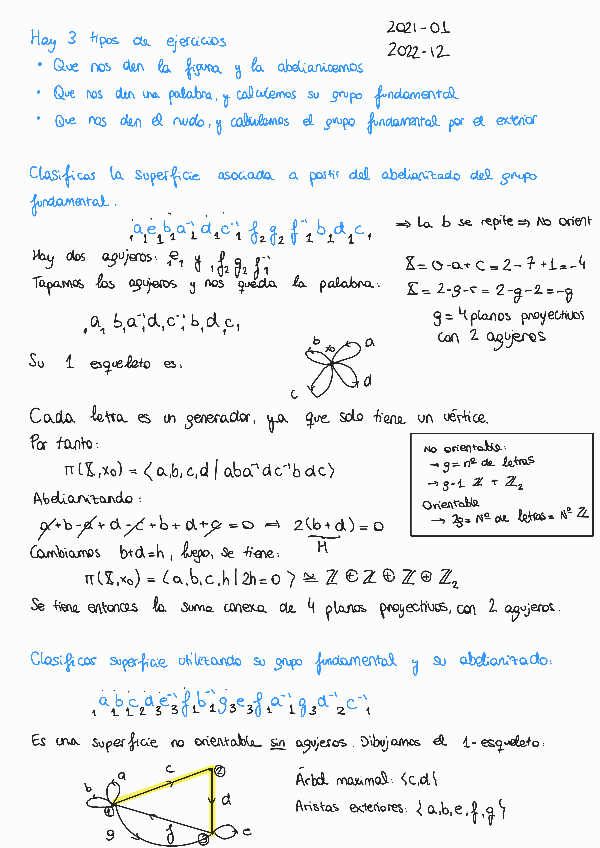 2021-01
2022-12
Hay 3 tipos de ejercicios
• Que nos den la figura y la abelianicemos
• Que nos den una palabra, y calculemos su grupo fundamental
• Que nos den el nudo, y calculemos el grupo fundamental por el exterior
Clasificas la superficie asociada a partir del abelianizado del grupo
fundamental.
₁a₁e₁b₁a₁⁻¹d₁c₁⁻¹f₂g₂f₁⁻¹b₁d₁c₁ ⇒ La b se repite ⇒ No orient
Hay dos agujeros: ₁e₁ y ₁f₂g₂f₁⁻¹
Tapamos los agujeros y nos queda la palabra:
₁a₁b₁a₁⁻¹d₁c₁⁻¹b₁d₁c₁
X = 0-a+c = 2-7+1 = -4
X = 2-g-r = 2-g-2 = -g
g = 4 planos proyectivos
con 2 agujeros
Su 1 esqueleto es:
b x₀ a
c d
Cada letra es un generador, ya que solo tiene un vértice.
Por tanto:
π(X,x₀) = ⟨a,b,c,d | aba⁻¹dc⁻¹bdc⟩
Abelianizando:
a+b-a+d-c+b+d+c = 0 ⇒ 2(b+d) = 0
H
Cambiamos b+d=h, luego, se tiene:
π(X,x₀) = ⟨a,b,c,h | 2h=0⟩ ≅ ℤ ⊕ ℤ ⊕ ℤ ⊕ ℤ₂
No orientable:
→ g = nº de letras
→ g-1 ℤ + ℤ₂
Orientable
→ 2g = Nº de letras = Nº ℤ
Se tiene entonces la suma conexa de 4 planos proyectivos, con 2 agujeros.
Clasificas superficie utilizando su grupo fundamental y su abelianizado:
₁a₁b₁c₂d₃e₃⁻¹f₁b₁⁻¹g₃e₃f₁a₁⁻¹g₃d₂⁻¹c₁⁻¹
Es una superficie no orientable sin agujeros. Dibujamos el 1-esqueleto:
b a c 2
1 d
g f 3 e
Árbol maximal: {c,d}
Aristas exteriores: {a,b,e,f,g}